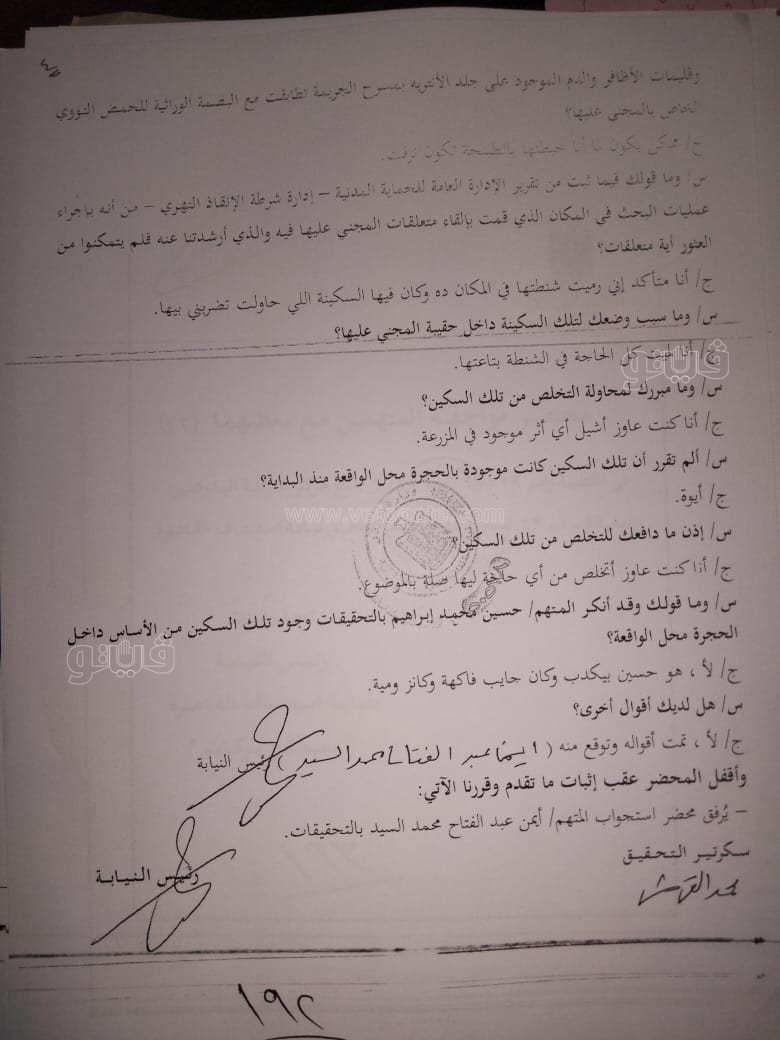 وقليمات الأظافر والدم الموجود على جلد الأنتريه بمسرح الجريمة تطابقت مع البصمة الوراثية للحمض النووي
الخاص بالمجني عليها؟
ج/ ممكن يكون لما أنا خبطتها بالطبنجة تكون نزفت.
س/ وما قولك فيما ثبت من تقرير الإدارة العامة للحماية المدنية – إدارة شرطة الإنقاذ النهري – من أنه بإجراء
عمليات البحث في المكان الذي قمت بإلقاء متعلقات المجني عليها فيه والذي أرشدتنا عنه فلم يتمكنوا من
العثور أية متعلقات؟
ج/ أنا متأكد إني رميت شنطتها في المكان ده وكان فيها السكينة اللي حاولت تضربني بيها.
س/ وما سبب وضعك لتلك السكينة داخل حقيبة المجني عليها؟
ج/ أنا لميت كل الحاجة في الشنطة بتاعتها.
فيتو
س/ وما مبررك لمحاولة التخلص من تلك السكين؟
ج/ أنا كنت عاوز أشيل أي أثر موجود في المزرعة.
س/ ألم تقرر أن تلك السكين كانت موجودة بالحجرة محل الواقعة منذ البداية؟
ج/ أيوة.
www.vetogate.com
س/ إذن ما دافعك للتخلص من تلك السكين؟
ج/ أنا كنت عاوز أتخلص من أي حاجة ليها صلة بالموضوع.
س/ وما قولك وقد أنكر المتهم/ حسين محمد إبراهيم بالتحقيقات وجود تلك السكين من الأساس داخل
الحجرة محل الواقعة؟
فيتو
ج/ لأ ، هو حسين بيكدب وكان جايب فاكهة وكانز ومية.
س/ هل لديك أقوال أخرى؟
ج/ لأ ، تمت أقواله وتوقع منه ( ايمن عبد الفتاح محمد السيد ) رئيس النيابة
وأقفل المحضر عقب إثبات ما تقدم وقررنا الآتي:
– يُرفق محضر استجواب المتهم/ أيمن عبد الفتاح محمد السيد بالتحقيقات.
سكرتير التحقيق
رئيس النيابة
١٩٢